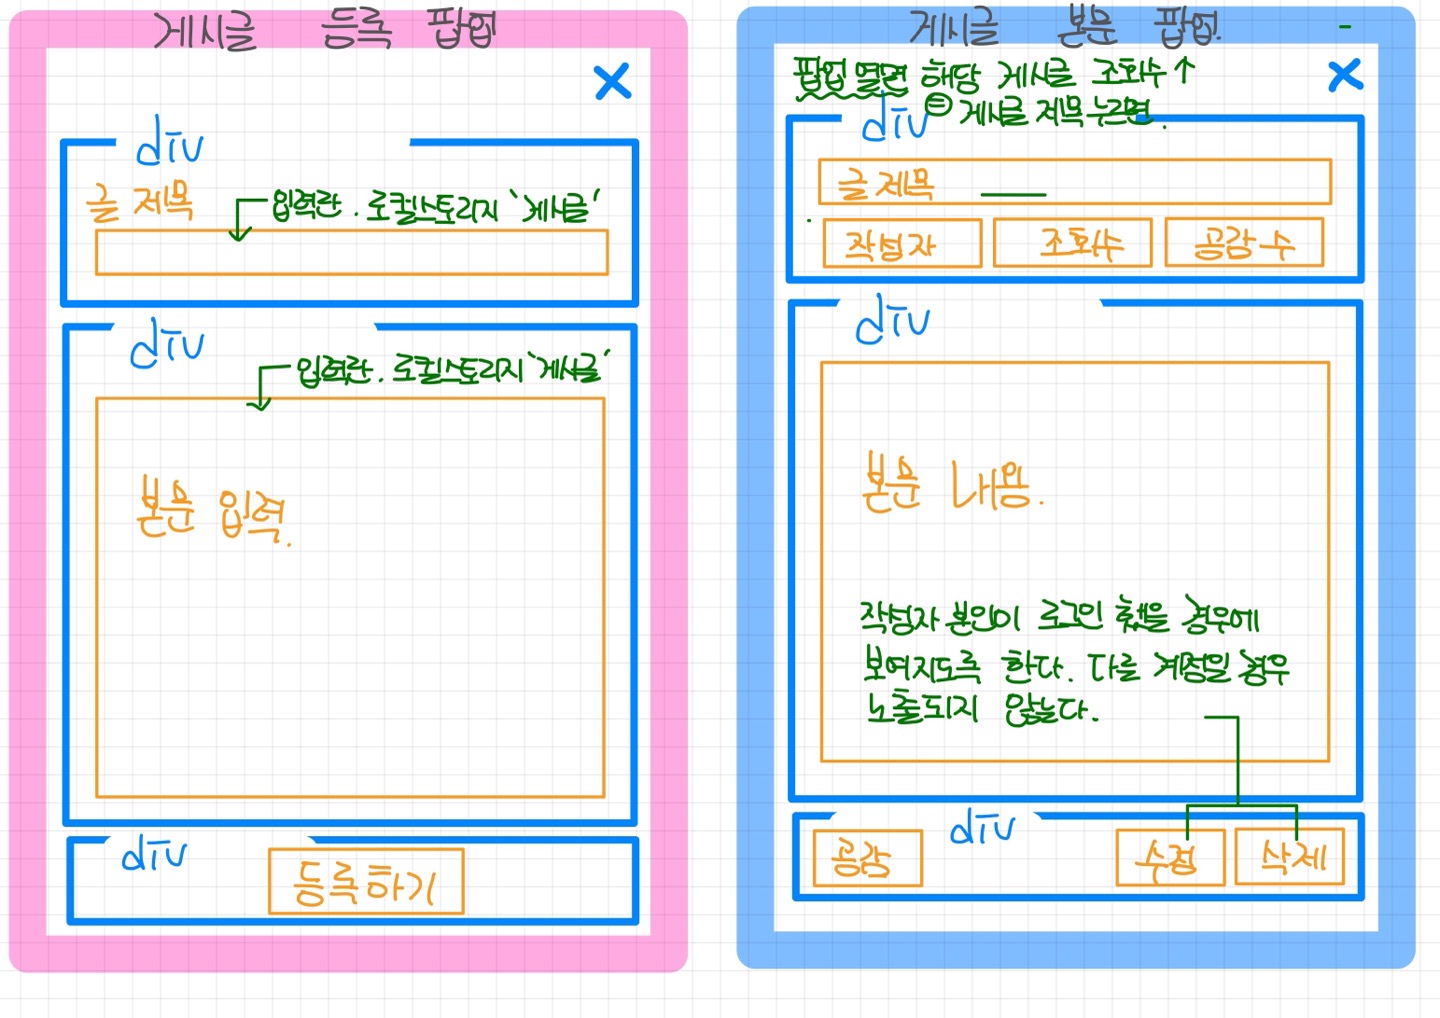 게시글 등록 팝업
X
div
글 제목
입력란. 로컬스토리지 '게시글'
div
입력란. 로컬스토리지 '게시글'
본문 입력.
div
등록하기
게시글 본문 팝업.
X
팝업 열면 해당 게시글 조회수↑
= 게시글 제목 누르면.
div
글 제목
작성자
조회수
공감 수
div
본문 내용.
작성자 본인이 로그인 했을 경우에
보여지도록 한다. 다른 계정일 경우
노출되지 않는다.
div
공감
수정
삭제